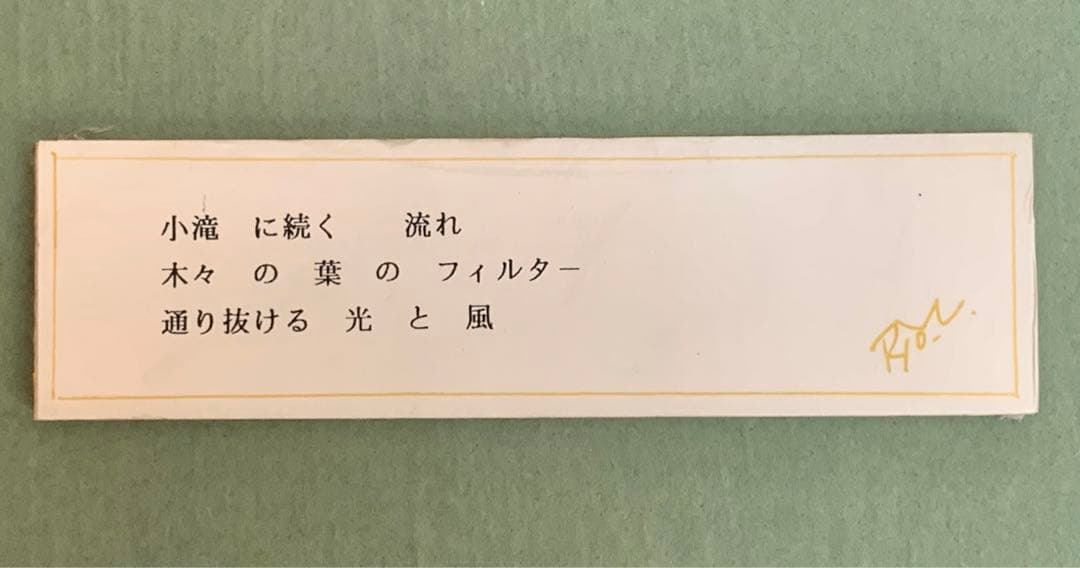 小滝　に続く　　流れ
木々　の　葉　の　フィルター
通り抜ける　光　と　風